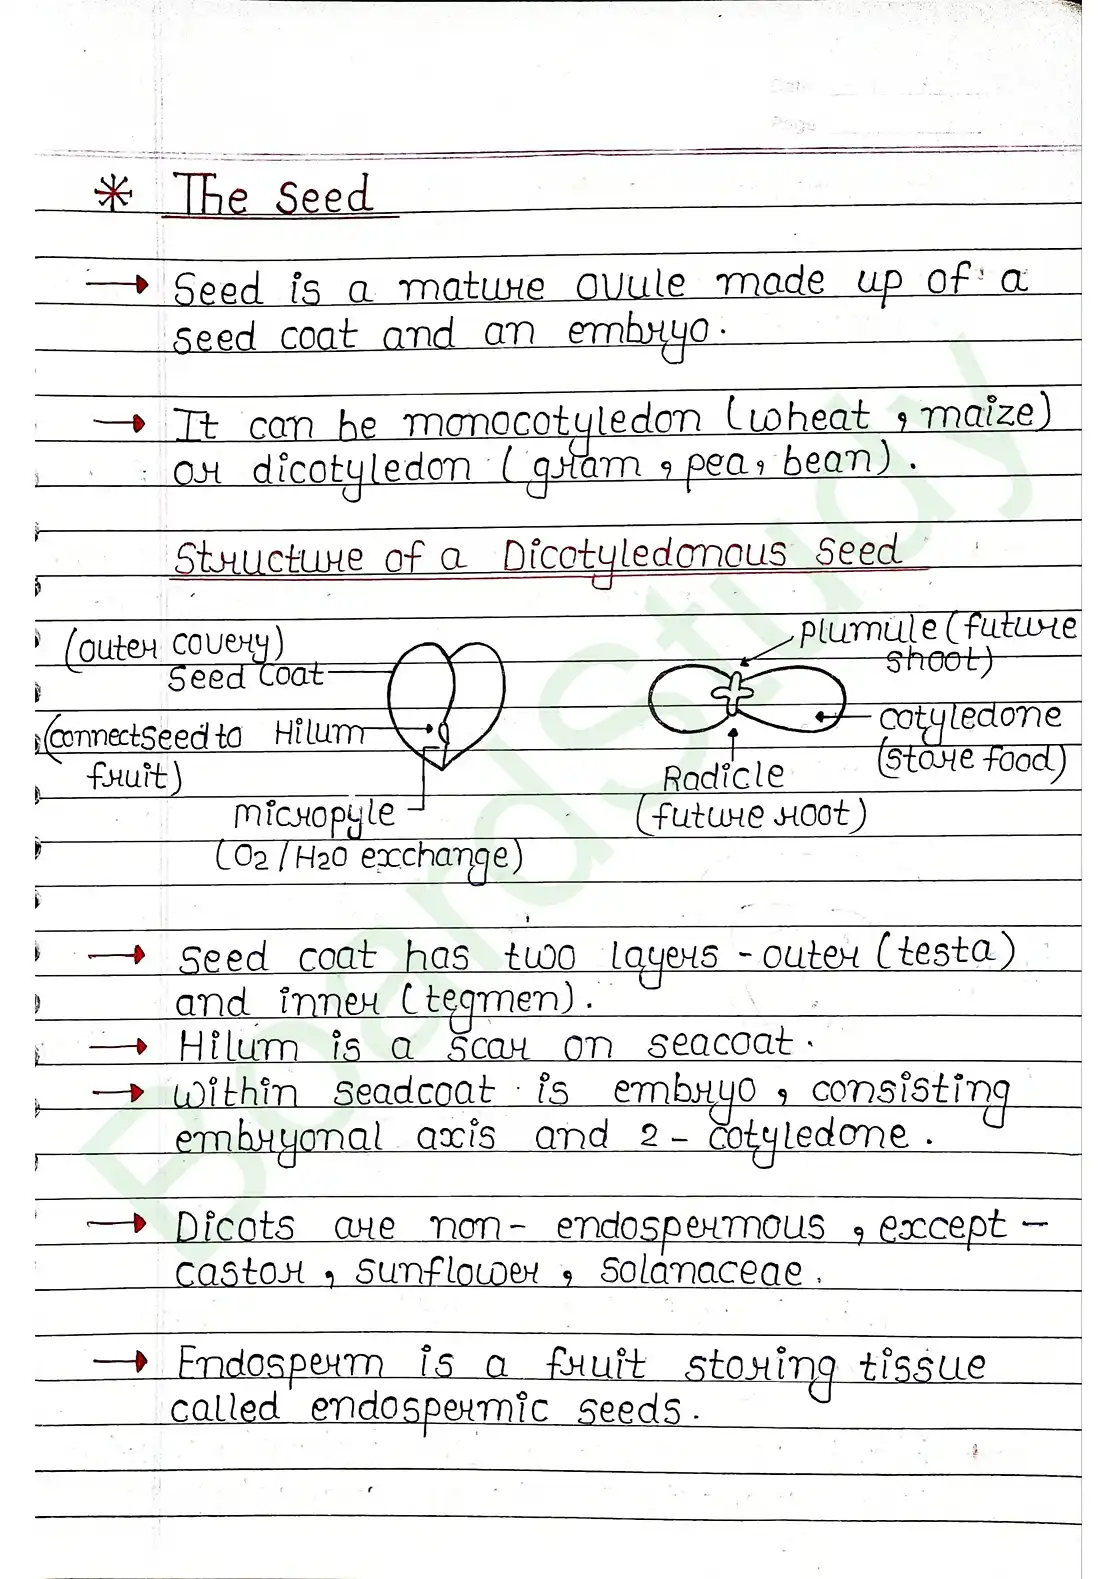 Date
Page
* The Seed
→ Seed is a mature ovule made up of a
seed coat and an embryo.
→ It can be monocotyledon (wheat, maize)
or dicotyledon (gram, pea, bean).
Structure of a Dicotyledonous Seed
(outer covery)
Seed Coat
(connect seed to Hilum
fruit)
micropyle
(O2/H2O exchange)
plumule (future
shoot)
cotyledone
(store food)
Radicle
(future root)
→ Seed coat has two layers - outer (testa)
and inner (tegmen).
→ Hilum is a scar on seacoat.
→ Within seadcoat is embryo, consisting
embryonal axis and 2- cotyledone.
→ Dicots are non- endospermous, except -
castor, sunflower, solanaceae.
→ Endosperm is a fruit storing tissue
called endospermic seeds.
BoardStudy